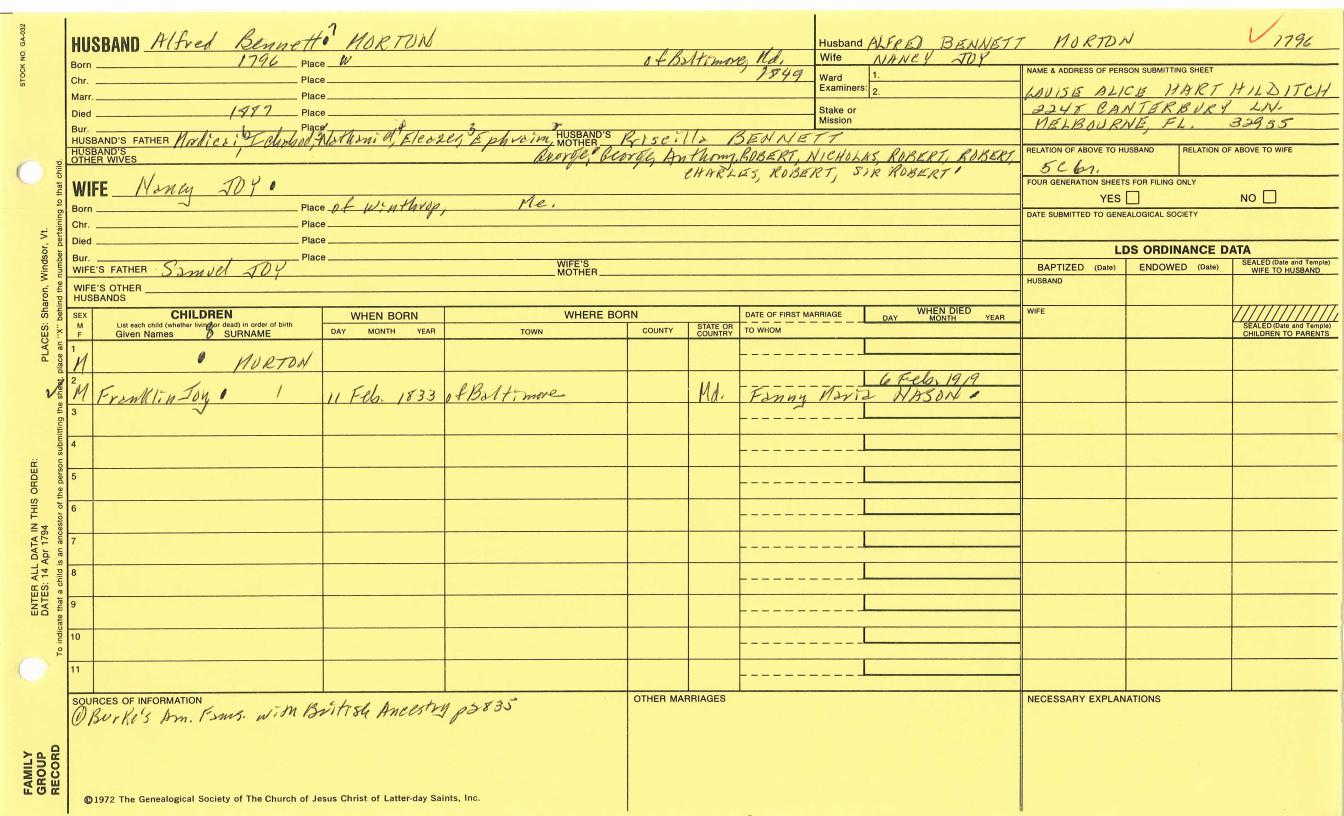 STOCK NO. GA-032
HUSBAND Alfred Bennett 7 MORTON
Born 1796 Place W of Baltimore, Md.
Chr. Place 1849
Marr. Place
Died Place
Bur. Place
HUSBAND'S FATHER Ichabod, Nathaniel, Eleazer, Ephraim, HUSBAND'S MOTHER Priscilla BENNETT
HUSBAND'S OTHER WIVES George, George, Anthony, ROBERT, NICHOLAS, ROBERT, ROBERT,
CHARLES, ROBERT, SIR ROBERT
WIFE Nancy JOY
Born Place of Winthrop, Me.
Chr. Place
Died Place
Bur. Place
WIFE'S FATHER Samuel JOY WIFE'S MOTHER
WIFE'S OTHER HUSBANDS
Husband ALFRED BENNETT MORTON 1796
Wife NANCY JOY
Ward Examiners: 1.
2.
Stake or Mission
NAME & ADDRESS OF PERSON SUBMITTING SHEET
LOUISE ALICE HART HILDITCH
2248 CANTERBURY LN.
MELBOURNE, FL. 32935
RELATION OF ABOVE TO HUSBAND RELATION OF ABOVE TO WIFE
5C 6r.
FOUR GENERATION SHEETS FOR FILING ONLY
YES NO
DATE SUBMITTED TO GENEALOGICAL SOCIETY
LDS ORDINANCE DATA
BAPTIZED (Date) ENDOWED (Date) SEALED (Date and Temple) WIFE TO HUSBAND
HUSBAND
WIFE
SEALED (Date and Temple) CHILDREN TO PARENTS
SEX M F CHILDREN WHEN BORN WHERE BORN DATE OF FIRST MARRIAGE WHEN DIED
List each child (whether living or dead) in order of birth
Given Names 8 SURNAME DAY MONTH YEAR TOWN COUNTY STATE OR COUNTRY TO WHOM DAY MONTH YEAR
1
M MORTON
2 6 Feb. 1919
M Franklin Joy 1 11 Feb. 1833 of Baltimore Md. Fanny Maria NASON
3
4
5
6
7
8
9
10
11
SOURCES OF INFORMATION
① Burke's Am. Fams. with British Ancestry p2835
OTHER MARRIAGES
NECESSARY EXPLANATIONS
©1972 The Genealogical Society of The Church of Jesus Christ of Latter-day Saints, Inc.
FAMILY GROUP RECORD
ENTER ALL DATA IN THIS ORDER:
DATES: 14 Apr 1794
PLACES: Sharon, Windsor, Vt.
To indicate that a child is an ancestor of the person submitting the sheet, place an "X" behind the number pertaining to that child.